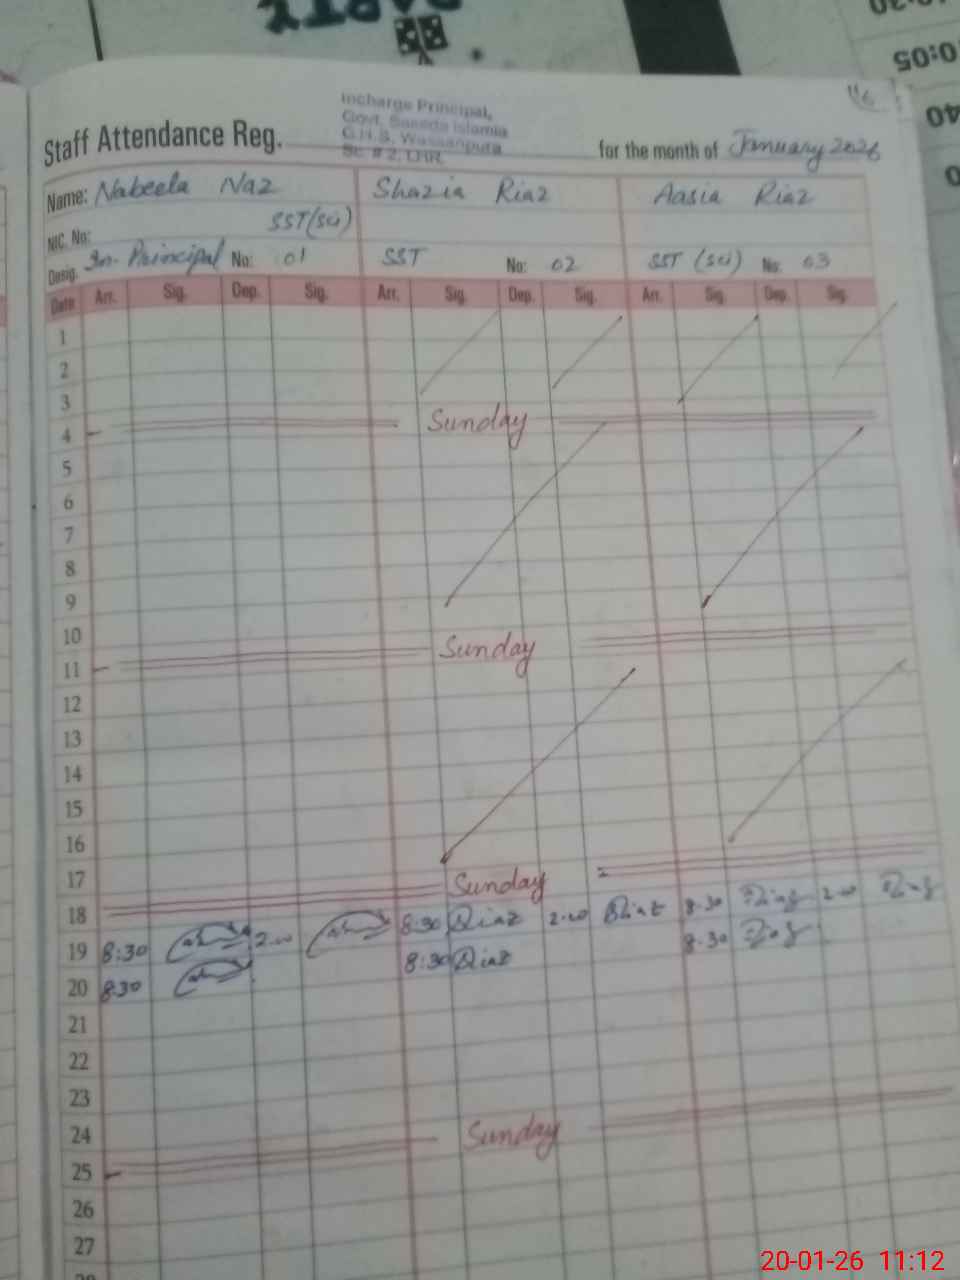 PARTY
0:05
40
Incharge Principal,
Govt. Saeeda Islamia
G.H.S. Wassanpura
Sc. # 2, LHR.
Staff Attendance Reg. for the month of January 2026
Name: Nabeela Naz Shazia Riaz Aasia Riaz
NIC. No: SST(sci)
Desig. In-Principal No: 01 SST No: 02 SST (sci) No: 03
Date Arr. Sig. Dep. Sig. Arr. Sig. Dep. Sig. Arr. Sig. Dep. Sig.
1
2
3
4 Sunday
5
6
7
8
9
10
11 Sunday
12
13
14
15
16
17
18 Sunday
19 8:30 2.00 8:30 Riaz 2.00 Riaz 8.30 2.00
20 8:30 8:30 Riaz 8.30
21
22
23
24
25 Sunday
26
27
20-01-26 11:12